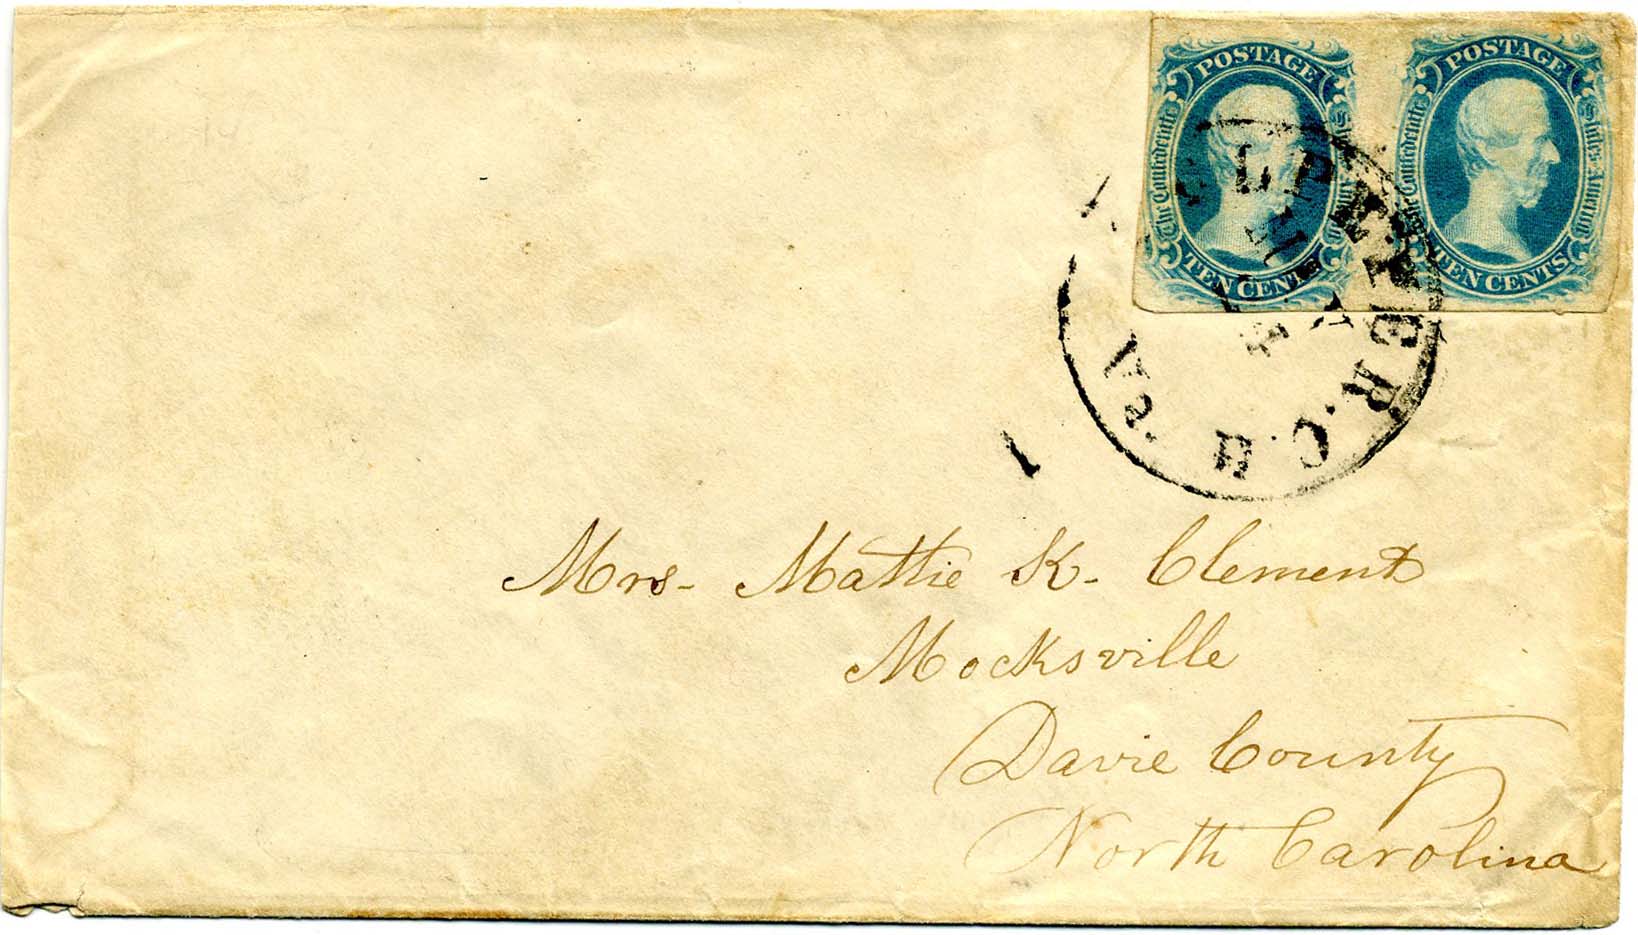 POSTAGE
The Confederate
TEN CENTS
POSTAGE
The Confederate States of America
TEN CENTS
CULPEPER. C. H. Va.
Mrs- Mattie K- Clement
Mocksville
Davie County
North Carolina